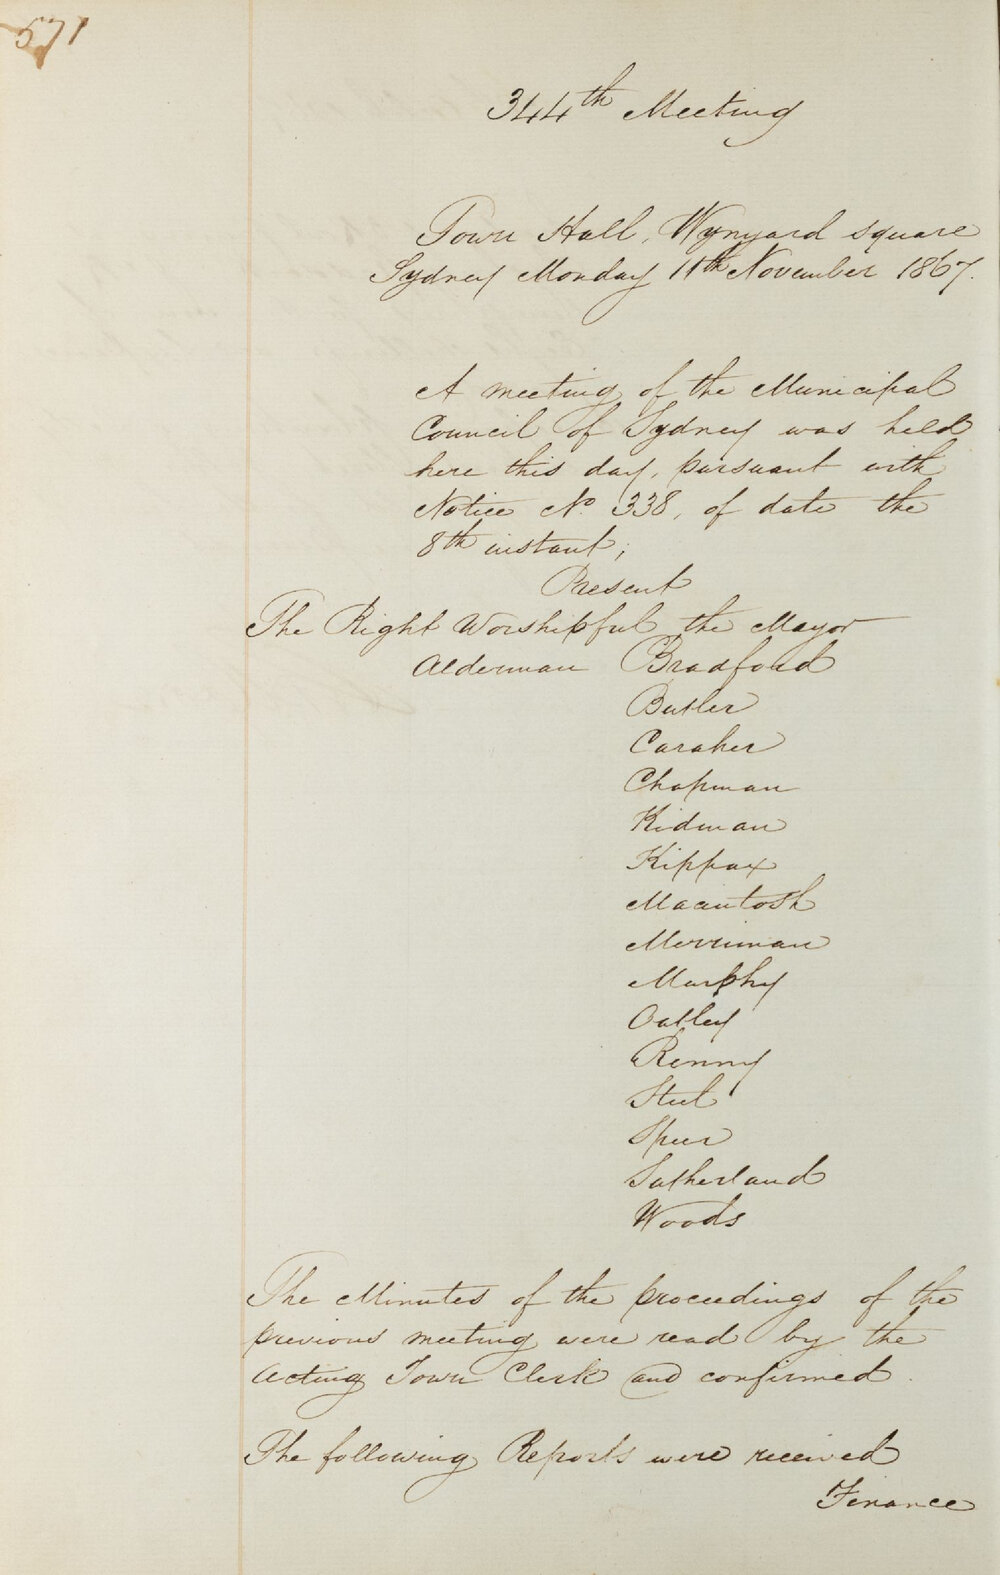 571
344th Meeting
Town Hall, Wynyard square
Sydney Monday 11th November 1867.
A meeting of the Municipal
Council of Sydney was held
here this day, pursuant with
Notice No. 338, of date the
8th instant;
Present
The Right Worshipful the Mayor
Alderman Bradford
Butler
Caraher
Chapman
Kidman
Kippax
Macintosh
Merriman
Murphy
Oatley
Renny
Steel
Speer
Sutherland
Woods
The Minutes of the proceedings of the
previous meeting were read by the
Acting Town Clerk and confirmed.
The following Reports were received
Finance